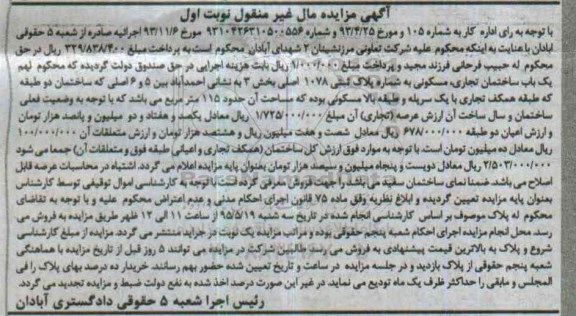 آگهی مزایده مال غیر منقول نوبت اول
با توجه به رای اداره کار به شماره ۱۰۵ و مورخ ۹۳/۴/۲۵ و شماره ۹۳۱۰۴۲۶۳۱۰۵۰۰۵۵۶ مورخ ۹۳/۱۱/۶ اجرائیه صادره از شعبه ۵ حقوقی
آبادان با عنایت به اینکه محکوم علیه شرکت تعاونی مرزنشینان ۲ شهدای آبادان محکوم است به پرداخت مبلغ ۳۲۹/۸۳۸/۴۰۰ ریال در حق
محکوم له حبیب فرحانی فرزند مجید و پرداخت مبلغ ۹/۰۰۰/۰۰۰ ریال بابت هزینه اجرایی در حق صندوق دولت گردیده که محکوم لهم
یک باب ساختمان تجاری، مسکونی به شماره پلاک ثبتی ۱۰۷۸ اصلی بخش ۳ به نشانی احمدآباد بین ۵ و ۶ اصلی که ساختمان دو طبقه
که طبقه همکف تجاری با یک سریله و طبقه بالا مسکونی بوده که مساحت آن حدود ۱۱۵ متر مربع می باشد که با توجه به وضعیت فعلی
ساختمان و سال ساخت آن ارزش عرصه (تجاری) آن مبلغ ۱/۷۲۵/۰۰۰/۰۰۰ ریال معادل یکصد و هفتاد و دو میلیون و پانصد هزار تومان
و ارزش اعیان دو طبقه ۶۷۸/۰۰۰/۰۰۰ ریال معادل شصت و هفت میلیون ریال و هشتصد هزار تومان و ارزش متعلقات آن ۱۰۰/۰۰۰/۰۰۰
ریال معادل ده میلیون تومان است. با توجه به موارد فوق ارزش کل ساختمان (همکف تجاری و اعیانی طبقه فوق و متعلقات آن) جمعا می شود
۲/۵۰۳/۰۰۰/۰۰۰ ریال معادل دویست و پنجاه میلیون و سیصد هزار تومان بعنوان پایه مزایده اعلام می گردد. اشتباه در محاسبات عرصه قابل
اصلاح می باشد. ضمنا نمای ساختمان سفید می باشد را جهت فروش معرفی کرده است. با توجه به کارشناسی اموال توقیفی توسط کارشناس
بعنوان پایه مزایده تعیین گردیده و ابلاغ نظریه وفق ماده ۷۵ قانون اجرای احکام مدنی و عدم اعتراض محکوم علیه و با توجه به تقاضای
محکوم له پلاک موصوف بر اساس کارشناسی انجام شده در تاریخ سه شنبه ۹۵/۵/۱۹ از ساعت ۱۱ الی ۱۲ ظهر طریق مزایده به فروش می
رسد. محل انجام مزایده اجرای احکام شعبه پنجم حقوقی بوده و مراتب مزایده یک نوبت در جراید منتشر می گردد. مزایده از مبلغ کارشناسی
شروع و پلاک به بالاترین قیمت پیشنهادی به فروش می رسد. طالبین شرکت در مزایده می توانند ۵ روز قبل از تاریخ مزایده با هماهنگی
شعبه پنجم حقوقی از پلاک بازدید و در جلسه مزایده در ساعت و تاریخ تعیین شده حضور بهم رسانند. خریدار ده درصد بهای پلاک را فی
المجلس و مابقی را حداکثر ظرف یک ماه تودیع می نماید. در غیر این صورت درصد اخذ شده به نفع دولت ضبط و مزایده تجدید می گردد.
رئیس اجرا شعبه ۵ حقوقی دادگستری آبادان